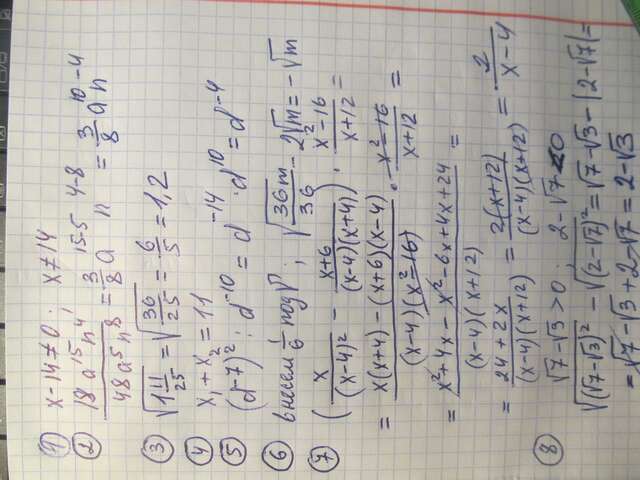 1) x-14≠0; x≠14
2) 18a¹⁵n⁴/48a⁵n⁸ = 3/8 a¹⁵⁻⁵ n⁴⁻⁸ = 3/8 a¹⁰ n⁻⁴
3) √(1 11/25) = √(36/25) = 6/5 = 1,2
4) x₁+x₂=11
5) (d⁻⁷)² : d⁻¹⁰ = d⁻¹⁴ · d¹⁰ = d⁻⁴
6) внесем 1/6 под √; √(36m/36) - 2√m = -√m
7) (x/(x-4)² - (x+6)/((x-4)(x+4))) · (x²-16)/(x+12) =
= (x(x+4)-(x+6)(x-4))/((x-4)(x²-16)) · (x²-16)/(x+12) =
= (x²+4x-x²-6x+4x+24)/((x-4)(x+12)) =
= (24+2x)/((x-4)(x+12)) = 2(x+12)/((x-4)(x+12)) = 2/(x-4)
8) √7-√3>0; 2-√7<0
√((√7-√3)²) - √((2-√7)²) = √7-√3-|2-√7| =
= √7-√3+2-√7 = 2-√3